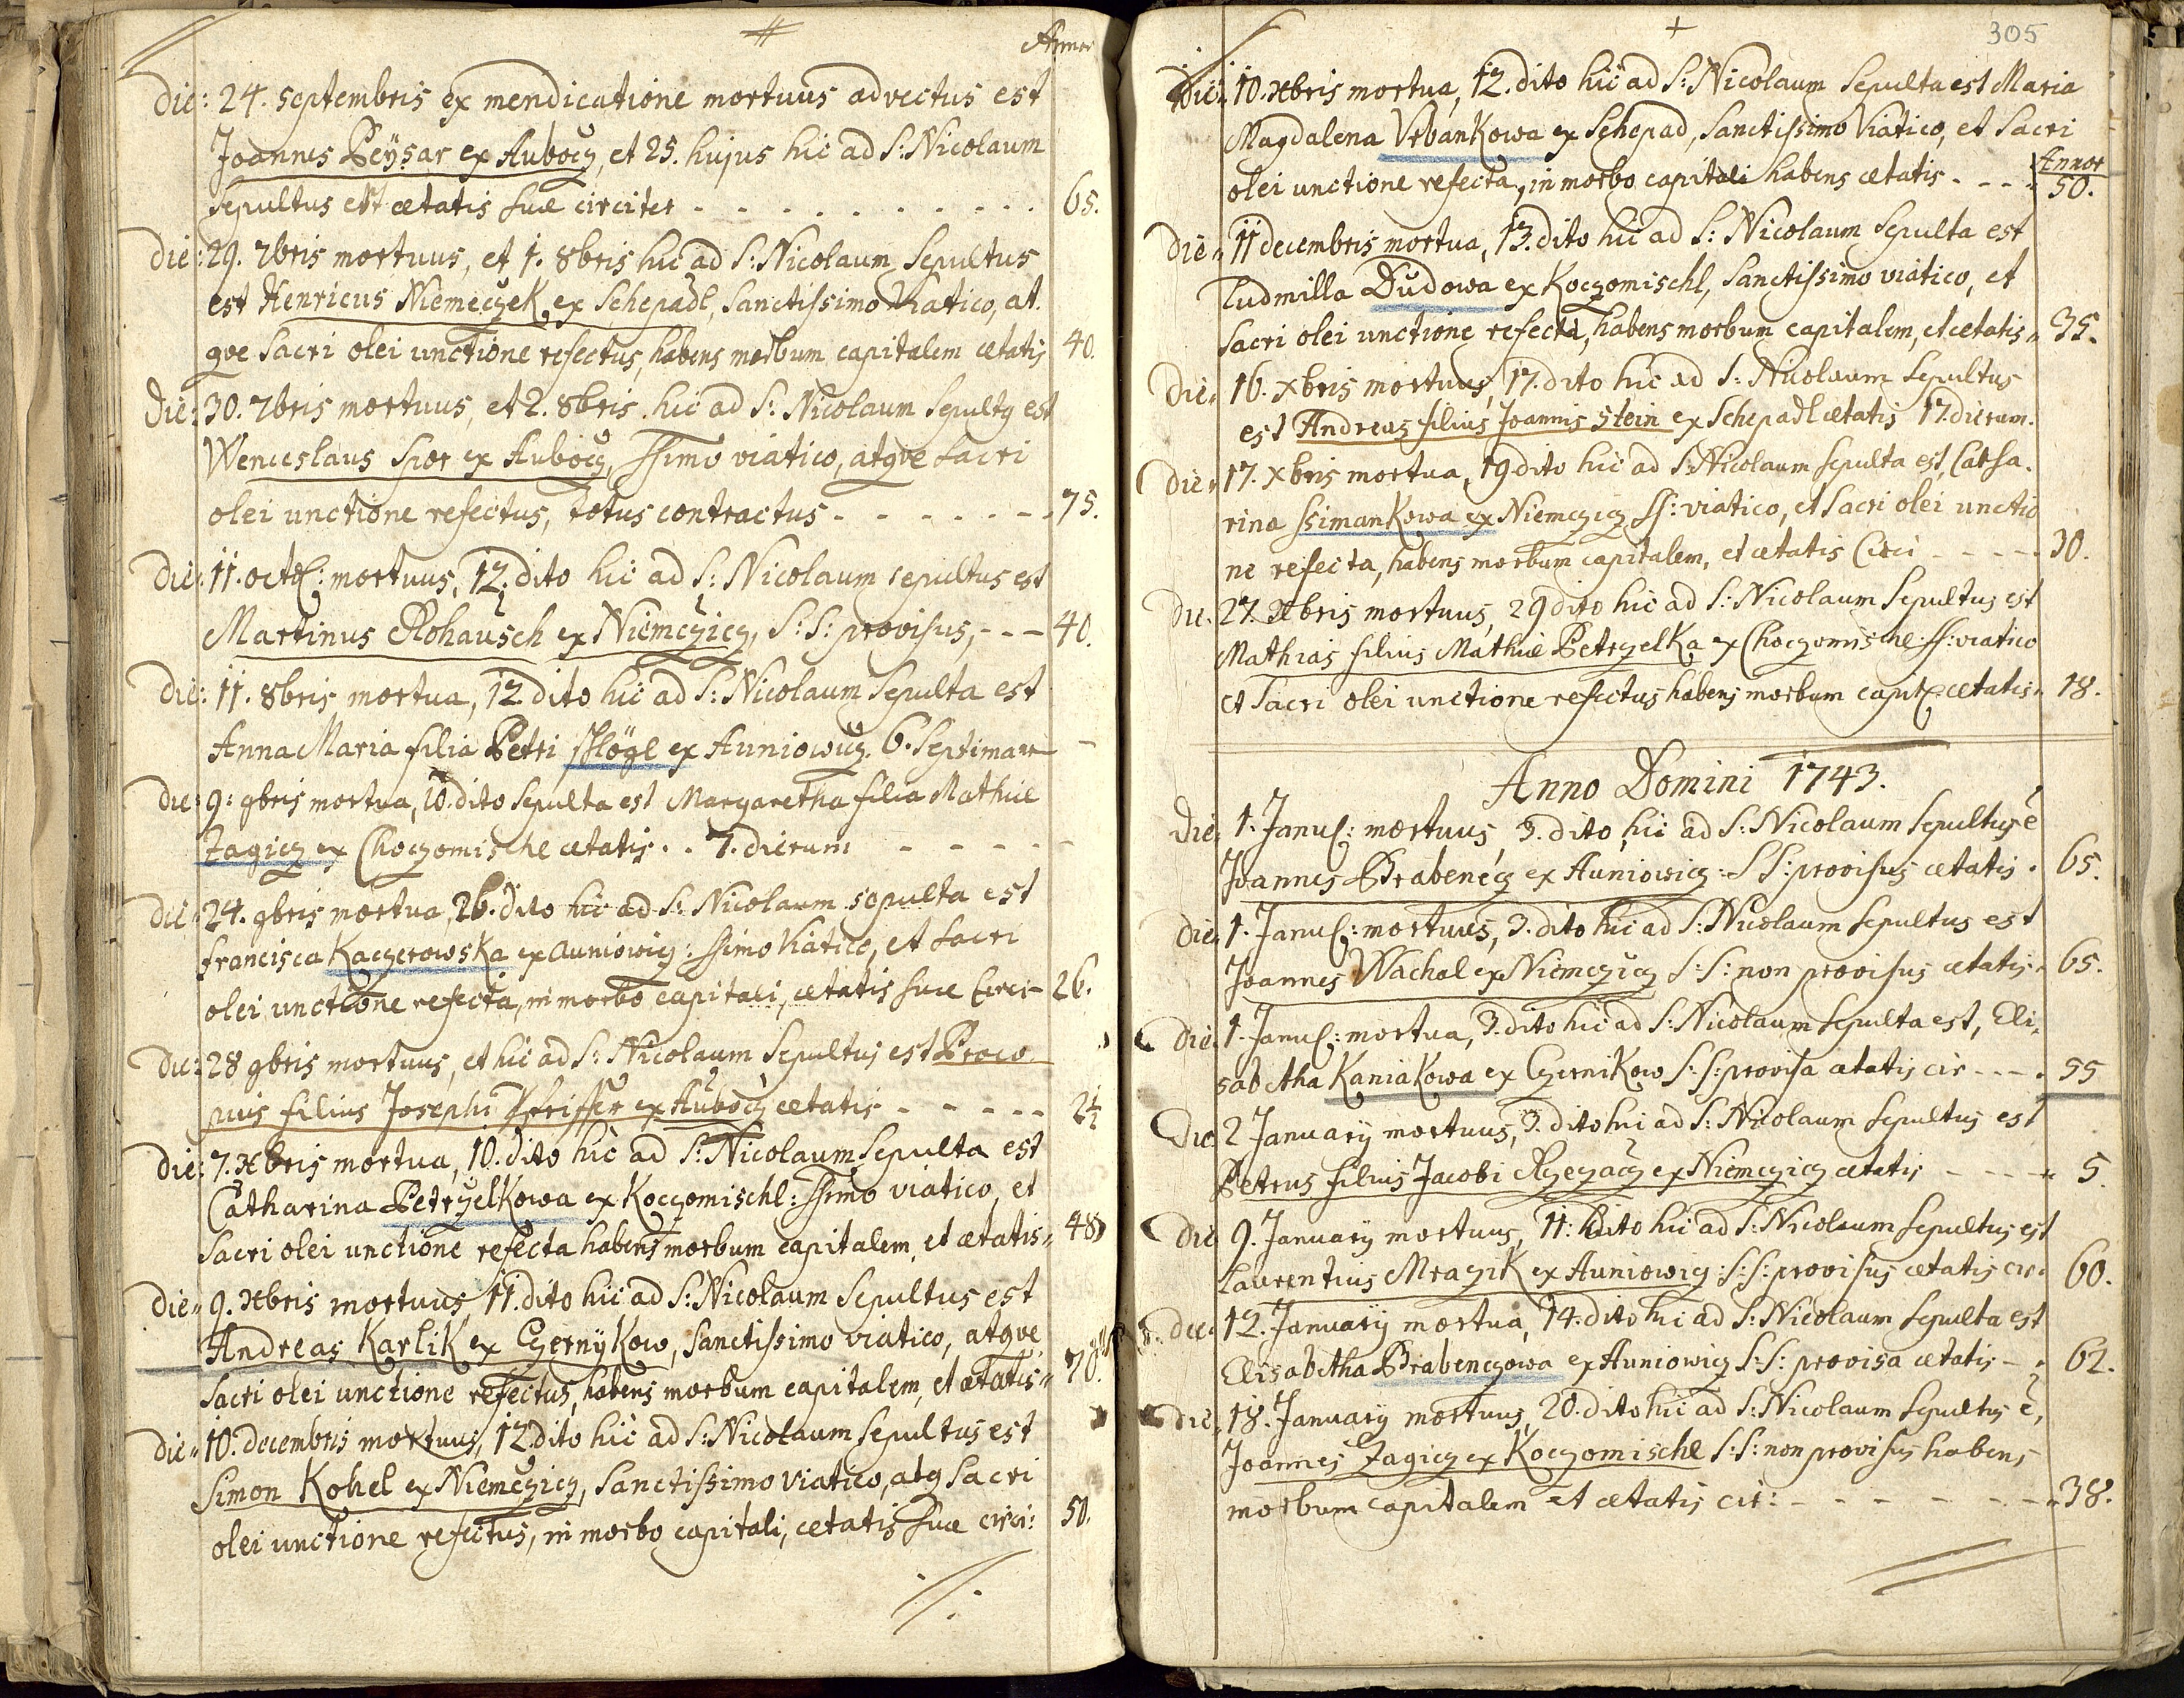 Annor
Die: 24. septembris ex mendicatione mortuus advectus est
Joannes Peÿsar ex Aubocz, et 25. hujus hic ad S: Nicolaum
sepultus est ætatis suæ circiter - - - - - - - - - - 65.
Die: 29. 7bris mortuus, et 1. 8bris hic ad S: Nicolaum Sepultus
est Henricus Niemeczek ex Schepadl, Sanctissimo Viatico, at
qve Sacri olei unctione refectus, habens morbum capitalem ætatis 40.
Die: 30. 7bris mortuus, et 2. 8bris hic ad S: Nicolaum Sepultq est
Wenceslaus Spor ex Aubocz, SSimo viatico, atqve Sacri
olei unctione refectus, totus contractus - - - - - - - 75.
Die: 11. octo[: mortuus, 12. dito hic ad S: Nicolaum sepultus est
Martinus Rohausch ex Niemczicz, S: S: provisus, - - - 40.
Die: 11. 8bris mortua, 12 dito hic ad S: Nicolaum Sepulta est
Anna Maria filia Petri ex Auniowicz. 6. Septimar -
Die: 9: 9bris mortua, 10. dito sepulta est Margaretha filia Mathiæ
Zagicz ex Choczomischl ætatis . . 7. dierum - - - - - -
Die: 24. 9bris mortua, 26. dito hic ad S: Nicolaum sepulta est
Francisca Kaczerowska ex Auniowicz: SSimo Viatico, et Sacri
olei unctione refecta, in morbo capitali, ætatis suæ Circi - 26.
Die: 28 9bris mortuus, et hic ad S: Nicolaum Sepultus est Proco
pius filius Josephi Pfeiffer ex Aubocz ætatis - - - - - 2½
Die: 7. Xbris mortua, 10. dito hic ad S: Nicolaum Sepulta est
Catharina Petrzelkowa ex Koczomischl: SSimo viatico, et
Sacri olei unctione refecta habens morbum capitalem, et ætatis„ 48
Die„ 9. Xbris mortuus 11. dito hic ad S: Nicolaum Sepultus est
Andreas Karlik ex Czernÿkow, Sanctissimo viatico, atqve
Sacri olei unctione refectus, habens morbum capitalem, et ætatis„ 70.
Die„ 10. decembris mortuus, 12 dito hic ad S: Nicolaum Sepultus est
Simon Kohel ex Niemczicz, Sanctissimo Viatico, atq Sacri
olei unctione refectus, in morbo capitali, ætatis suæ circi: 50.
305
Die: 10. Xbris mortua, 12. dito hic ad S: Nicolaum Sepulta est Maria
Magdalena Vrbankowa ex Schepad, Sanctissimo Viatico, et Sacri
Annor
olei unctione refecta, in morbo capitali habens ætatis - - - 50.
Die„ 11 decembris mortua, 13. dito hic ad S: Nicolaum Sepulta est
Ludmilla Dudowa ex Koczomischl, Sanctissimo viatico, et
Sacri olei unctione refecta, habens morbum capitalem, et ætatis„ 35.
Die„ 16. Xbris mortuus, 17. dito hic ad S: Nicolaum Sepultus
est Andreas filius Joannis Stein ex Schepadl ætatis 17. dierum.
Die„ 17. Xbris mortua, 19 dito hic ad S: Nicolaum sepulta est, Catha-
rina Ssimankowa ex Niemczicz SS: viatico, et Sacri olei unctio
ne refecta, habens morbum capitalem, et ætatis Circi - - - - - 30.
Die. 27. Xbris mortuus, 29 dito hic ad S: Nicolaum Sepultus est
Mathias filius Mathiæ Petrzelka ex Choczomischl: SS: viatico
et Sacri olei unctione refectus habens morbum capit: ætatis„ 18.
Anno Domini 1743.
Die: 1. Janu[: mortuus, 3. dito, hic ad S: Nicolaum Sepultus ẽ
Joannes Brabenécz ex Auniowicz: S S: provisus ætatis . 65.
Die: 1. Janu[: mortuus, 3. dito hic ad S: Nicolaum Sepultus est
Joannes Wachal ex Niemczicz S: S: non provisus ætatis„ 65.
Die: 1. Janu[: mortua, 3. dito hic ad S: Nicolaum Sepulta est, Eli-
sabetha Kaniakowa ex Czernikow S: S: provisa ætatis cir - - - . 55
Die 2 Januarÿ mortuus, 3. dito hic ad S: Nicolaum Sepultus est
Petrus filius Jacobi Rzezacz ex Niemczicz ætatis - - - - „ 5.
Die 9. Januarÿ mortuus, 11: dito hic ad S: Nicolaum Sepultus est
Laurentius Mrazik ex Auniowicz: S: S: provisus ætatis cir: 60.
Die: 12. Januarÿ mortua, 14. dito hic ad S: Nicolaum Sepulta est
Elisabetha Brabenczowa ex Auniowicz S: S: provisa ætatis - „ 62.
Die, 18. Januarÿ mortuus, 20. dito hic ad S: Nicolaum Sepultus ẽ,
Joannes Zagicz ex Koczomischl S: S: non provisus habens
morbum capitalem et ætatis cir: - - - - - - - „ 38.